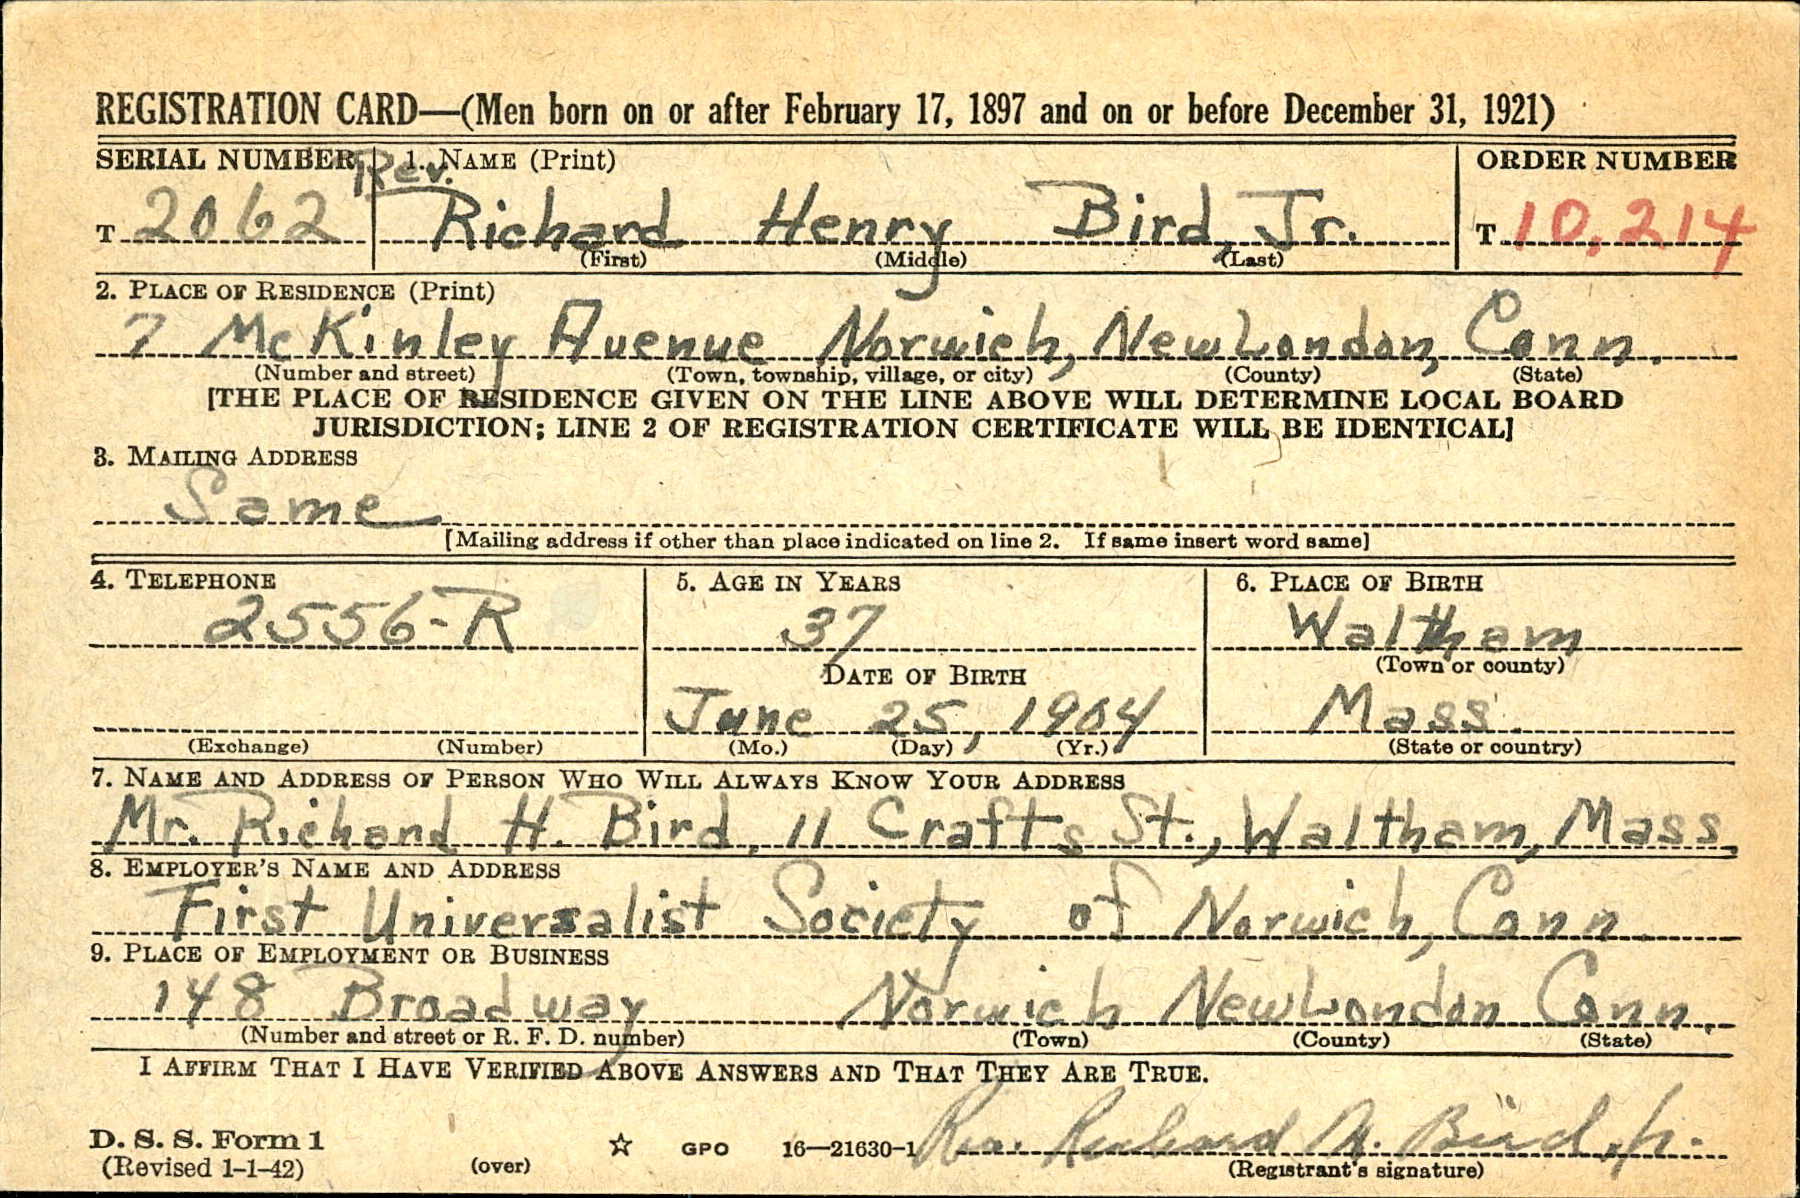 REGISTRATION CARD—(Men born on or after February 17, 1897 and on or before December 31, 1921)
SERIAL NUMBER 1. NAME (Print) ORDER NUMBER
Rev.
T 2062 Richard Henry Bird, Jr. T 10,214
(First) (Middle) (Last)
2. PLACE OF RESIDENCE (Print)
7 McKinley Avenue Norwich, New London, Conn.
(Number and street) (Town, township, village, or city) (County) (State)
[THE PLACE OF RESIDENCE GIVEN ON THE LINE ABOVE WILL DETERMINE LOCAL BOARD
JURISDICTION; LINE 2 OF REGISTRATION CERTIFICATE WILL BE IDENTICAL]
3. MAILING ADDRESS
Same
[Mailing address if other than place indicated on line 2. If same insert word same]
4. TELEPHONE 5. AGE IN YEARS 6. PLACE OF BIRTH
2556-R 37 Waltham
DATE OF BIRTH (Town or county)
June 25, 1904 Mass.
(Exchange) (Number) (Mo.) (Day) (Yr.) (State or country)
7. NAME AND ADDRESS OF PERSON WHO WILL ALWAYS KNOW YOUR ADDRESS
Mr. Richard H. Bird, 11 Crafts St., Waltham, Mass.
8. EMPLOYER'S NAME AND ADDRESS
First Universalist Society of Norwich, Conn.
9. PLACE OF EMPLOYMENT OR BUSINESS
148 Broadway Norwich New London Conn.
(Number and street or R. F. D. number) (Town) (County) (State)
I AFFIRM THAT I HAVE VERIFIED ABOVE ANSWERS AND THAT THEY ARE TRUE.
D. S. S. Form 1 ☆ GPO 16—21630-1 Rev. Richard H. Bird, Jr.
(Revised 1-1-42) (over) (Registrant's signature)